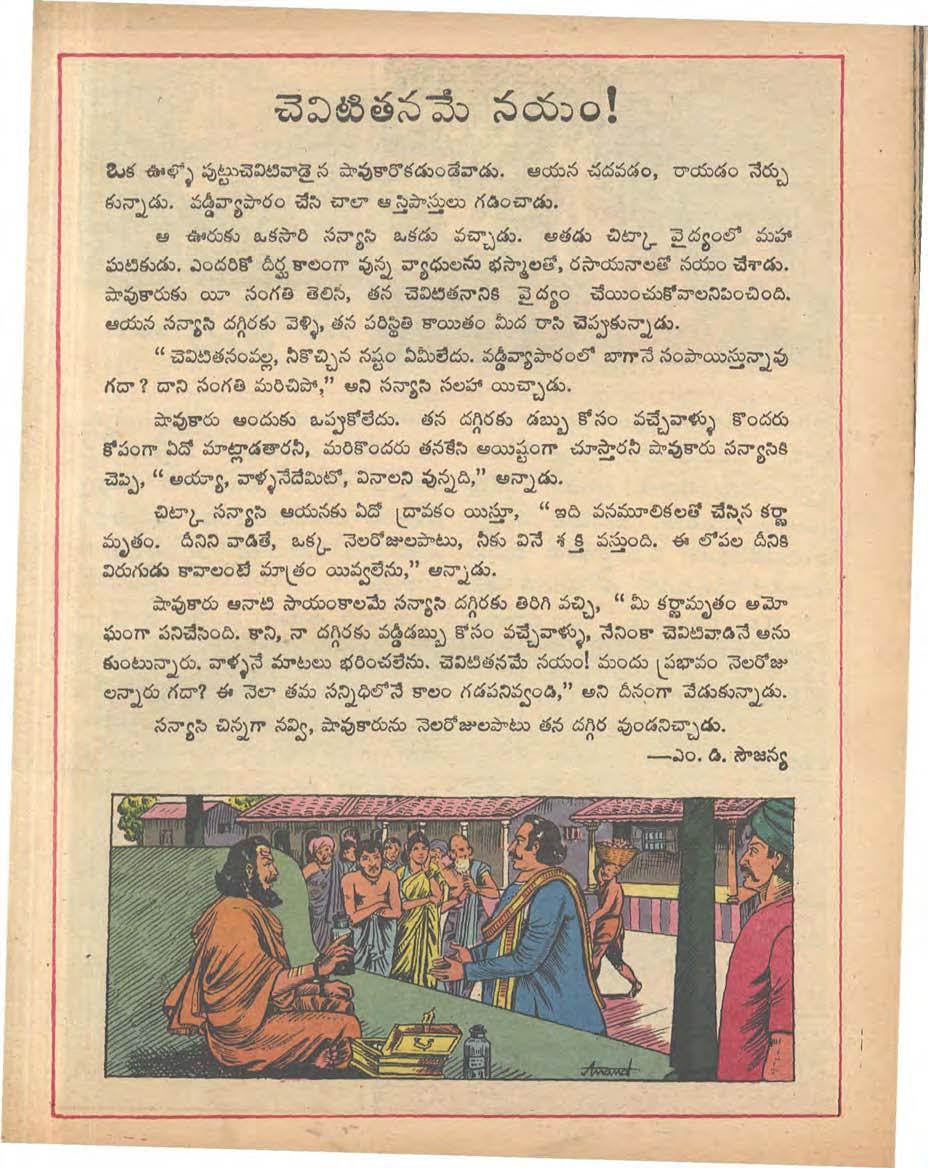 చెవిటితనమే నయం!
ఒక ఊళ్ళో పుట్టుచెవిటివాడైన షావుకారొకడుండేవాడు. ఆయన చదవడం, రాయడం నేర్చు
కున్నాడు. వడ్డీవ్యాపారం చేసి చాలా ఆస్తిపాస్తులు గడించాడు.
ఆ ఊరుకు ఒకసారి సన్యాసి ఒకడు వచ్చాడు. అతడు చిట్కా వైద్యంలో మహా
ఘటికుడు. ఎందరికో దీర్ఘకాలంగా వున్న వ్యాధులను భస్మాలతో, రసాయనాలతో నయం చేశాడు.
షావుకారుకు యీ సంగతి తెలిసి, తన చెవిటితనానికి వైద్యం చేయించుకోవాలనిపించింది.
ఆయన సన్యాసి దగ్గిరకు వెళ్ళి, తన పరిస్థితి కాయితం మీద రాసి చెప్పుకున్నాడు.
“చెవిటితనంవల్ల, నీకొచ్చిన నష్టం ఏమీలేదు. వడ్డీవ్యాపారంలో బాగానే సంపాయిస్తున్నావు
గదా? దాని సంగతి మరిచిపో,” అని సన్యాసి సలహా యిచ్చాడు.
షావుకారు అందుకు ఒప్పుకోలేదు. తన దగ్గిరకు డబ్బు కోసం వచ్చేవాళ్ళు కొందరు
కోపంగా ఏదో మాట్లాడతారనీ, మరికొందరు తనకేసి అయిష్టంగా చూస్తారనీ షావుకారు సన్యాసికి
చెప్పి, “అయ్యా, వాళ్ళనేదేమిటో, వినాలని వున్నది,” అన్నాడు.
చిట్కా సన్యాసి ఆయనకు ఏదో ద్రావకం యిస్తూ, “ఇది వనమూలికలతో చేసిన కర్ణా
మృతం. దీనిని వాడితే, ఒక్క నెలరోజులపాటు, నీకు వినే శక్తి వస్తుంది. ఈ లోపల దీనికి
విరుగుడు కావాలంటే మాత్రం యివ్వలేను,” అన్నాడు.
షావుకారు ఆనాటి సాయంకాలమే సన్యాసి దగ్గిరకు తిరిగి వచ్చి, “మీ కర్ణామృతం అమో
ఘంగా పనిచేసింది. కాని, నా దగ్గిరకు వడ్డీడబ్బు కోసం వచ్చేవాళ్ళు, నేనింకా చెవిటివాడినే అను
కుంటున్నారు. వాళ్ళనే మాటలు భరించలేను. చెవిటితనమే నయం! మందు ప్రభావం నెలరోజు
లన్నారు గదా? ఈ నెలా తమ సన్నిధిలోనే కాలం గడపనివ్వండి,” అని దీనంగా వేడుకున్నాడు.
సన్యాసి చిన్నగా నవ్వి, షావుకారును నెలరోజులపాటు తన దగ్గిర వుండనిచ్చాడు.
—ఎం. డి. సౌజన్య
Anand